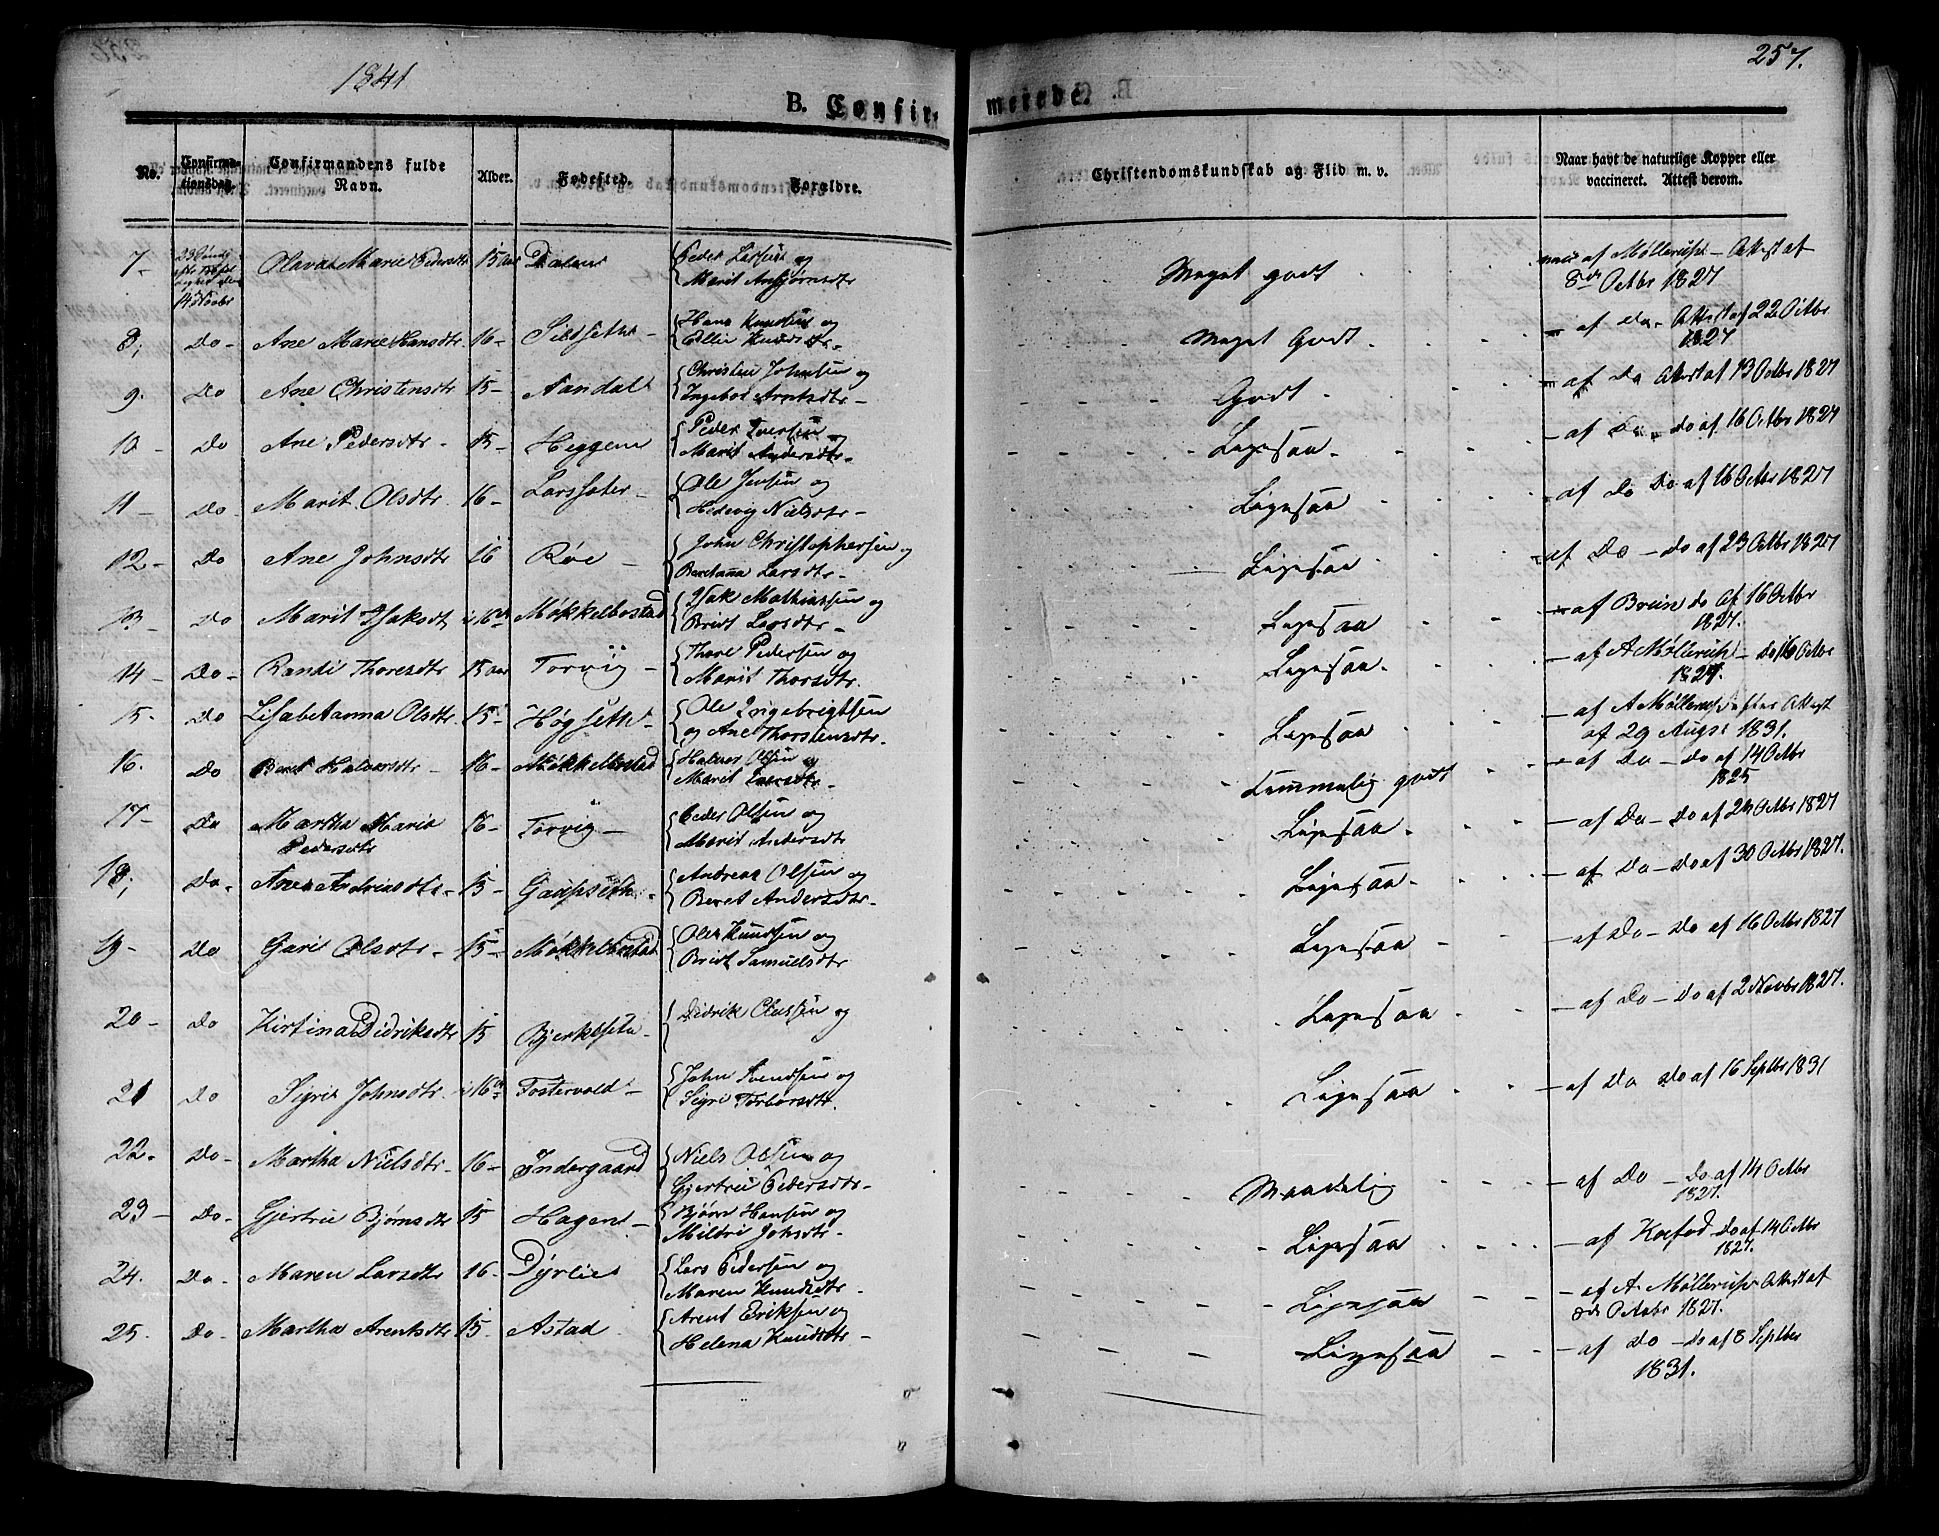 1841
257.
B. Confir- merede.
No. Confirma- tionsdag. Confirmandens fulde Navn. Alder. Fødested. Forældre. Christendomskundskab og Flid m. v. Naar havt de naturlige Kopper eller vaccineret. Attest derom.
7- 14 Novbr Marie Pedersdtr 15 Aar Peder og Marit Meget godt af Møllerup - Attest af 8de Octbr 1827
8, Do- Ane Marie Hansdtr 16- Sildsethe- Hans Knudsen og Knudsdtr- Meget Godt - af Do- Attest af 22 Octbr 1827
9. Do Ane Christensdtr 15- Christen Johnsen og Ingebor Arntsdtr- Godt - af Do Attest af 13 Octbr 1827
10- Do Ane Pedersdtr- 15- Heggem Peder Iversen og Marit Andersdtr- Ligesaa - af Do do af 16 Octbr 1827
11- Do- Marit Olsdtr. 16- Larssæter- Ole Jensen og Hedevig Nielsdtr- Ligesaa - af Do Do af 16 Octbr 1827
12- Do Ane Johnsdtr 16 Røe- John Christophersen og Beretanna Larsdtr- Ligesaa - af Do - do af 23 Octbr 1827
13- Do Marit Isaksdtr Møkkelbostad Isak Mathiassen og Larsdtr- Ligesaa - af Brein do af 16 Octbr 1827.
14- Do- Randi Thoresdtr 15 Aar Torvig- Thore Pedersen og Marit Thorsdtr. Ligesaa - af A Møllerup - Do 16 Octbr 1827.
15- Do Lisabetanna Olsdtr. 15- Høgseth Ole Ingebrigtsen og Ane Thorstensdtr- Ligesaa - af A Møllerup efter Attest af 29 August 1831.
16. Do Beret Halvorsdtr- 16- Møkkelbostad Halvor Olsen og Marit Iversdtr- Temmelig godt - af Do - do af 14 Octbr 1825
17- Do Martha Maria Pedersdtr 16- Torvig- Peder Olsen og Marit Andersdtr Ligesaa - af Do - Do af 24 Octbr 1827
18, Do- 15- Gaupseth Andreas Olsen og Beret Andersdtr- Ligesaa - af Do - Do af 30 Octbr 1827.
19- Do Guri Olsdtr- 15- Møkkelbostad Ole Knudsen og Samuelsdtr Ligesaa - af Do - Do af 16 Octbr 1827
20- Do Kirtina Didriksdtr 15 Didrik og Ligesaa - af Do - Do af 2 Novbr 1827.
21 Do Sigri Johnsdtr. Tostervold- John Svendsen og Sigri Torborsdtr. Ligesaa - af Do Do af 16 Septbr 1831
22- Do- Martha Nielsdtr- 16- Indergaard Niels Olsen og Gjertru Pedersdtr- Maadelig - af Do - Do af 14 Octbr 1827.
23- Do- Gjertru Bjørnsdtr 15 Hagen- Bjørn Hansen og Mildri Johsdtr- Ligesaa - af Koefod - do af 14 Octbr 1827.
24. Do- Maren Larsdtr 16- Dyrlie Lars Pedersen og Maren Knudsdtr- Ligesaa - af A. Møllerup Attest af 8de Octobr 1827.
25. Do- Martha Arentsdtr 15- Astad Arent Eriksen og Helena Knudsdtr- Ligesaa - af Do - Do af 8 Septbr 1831.